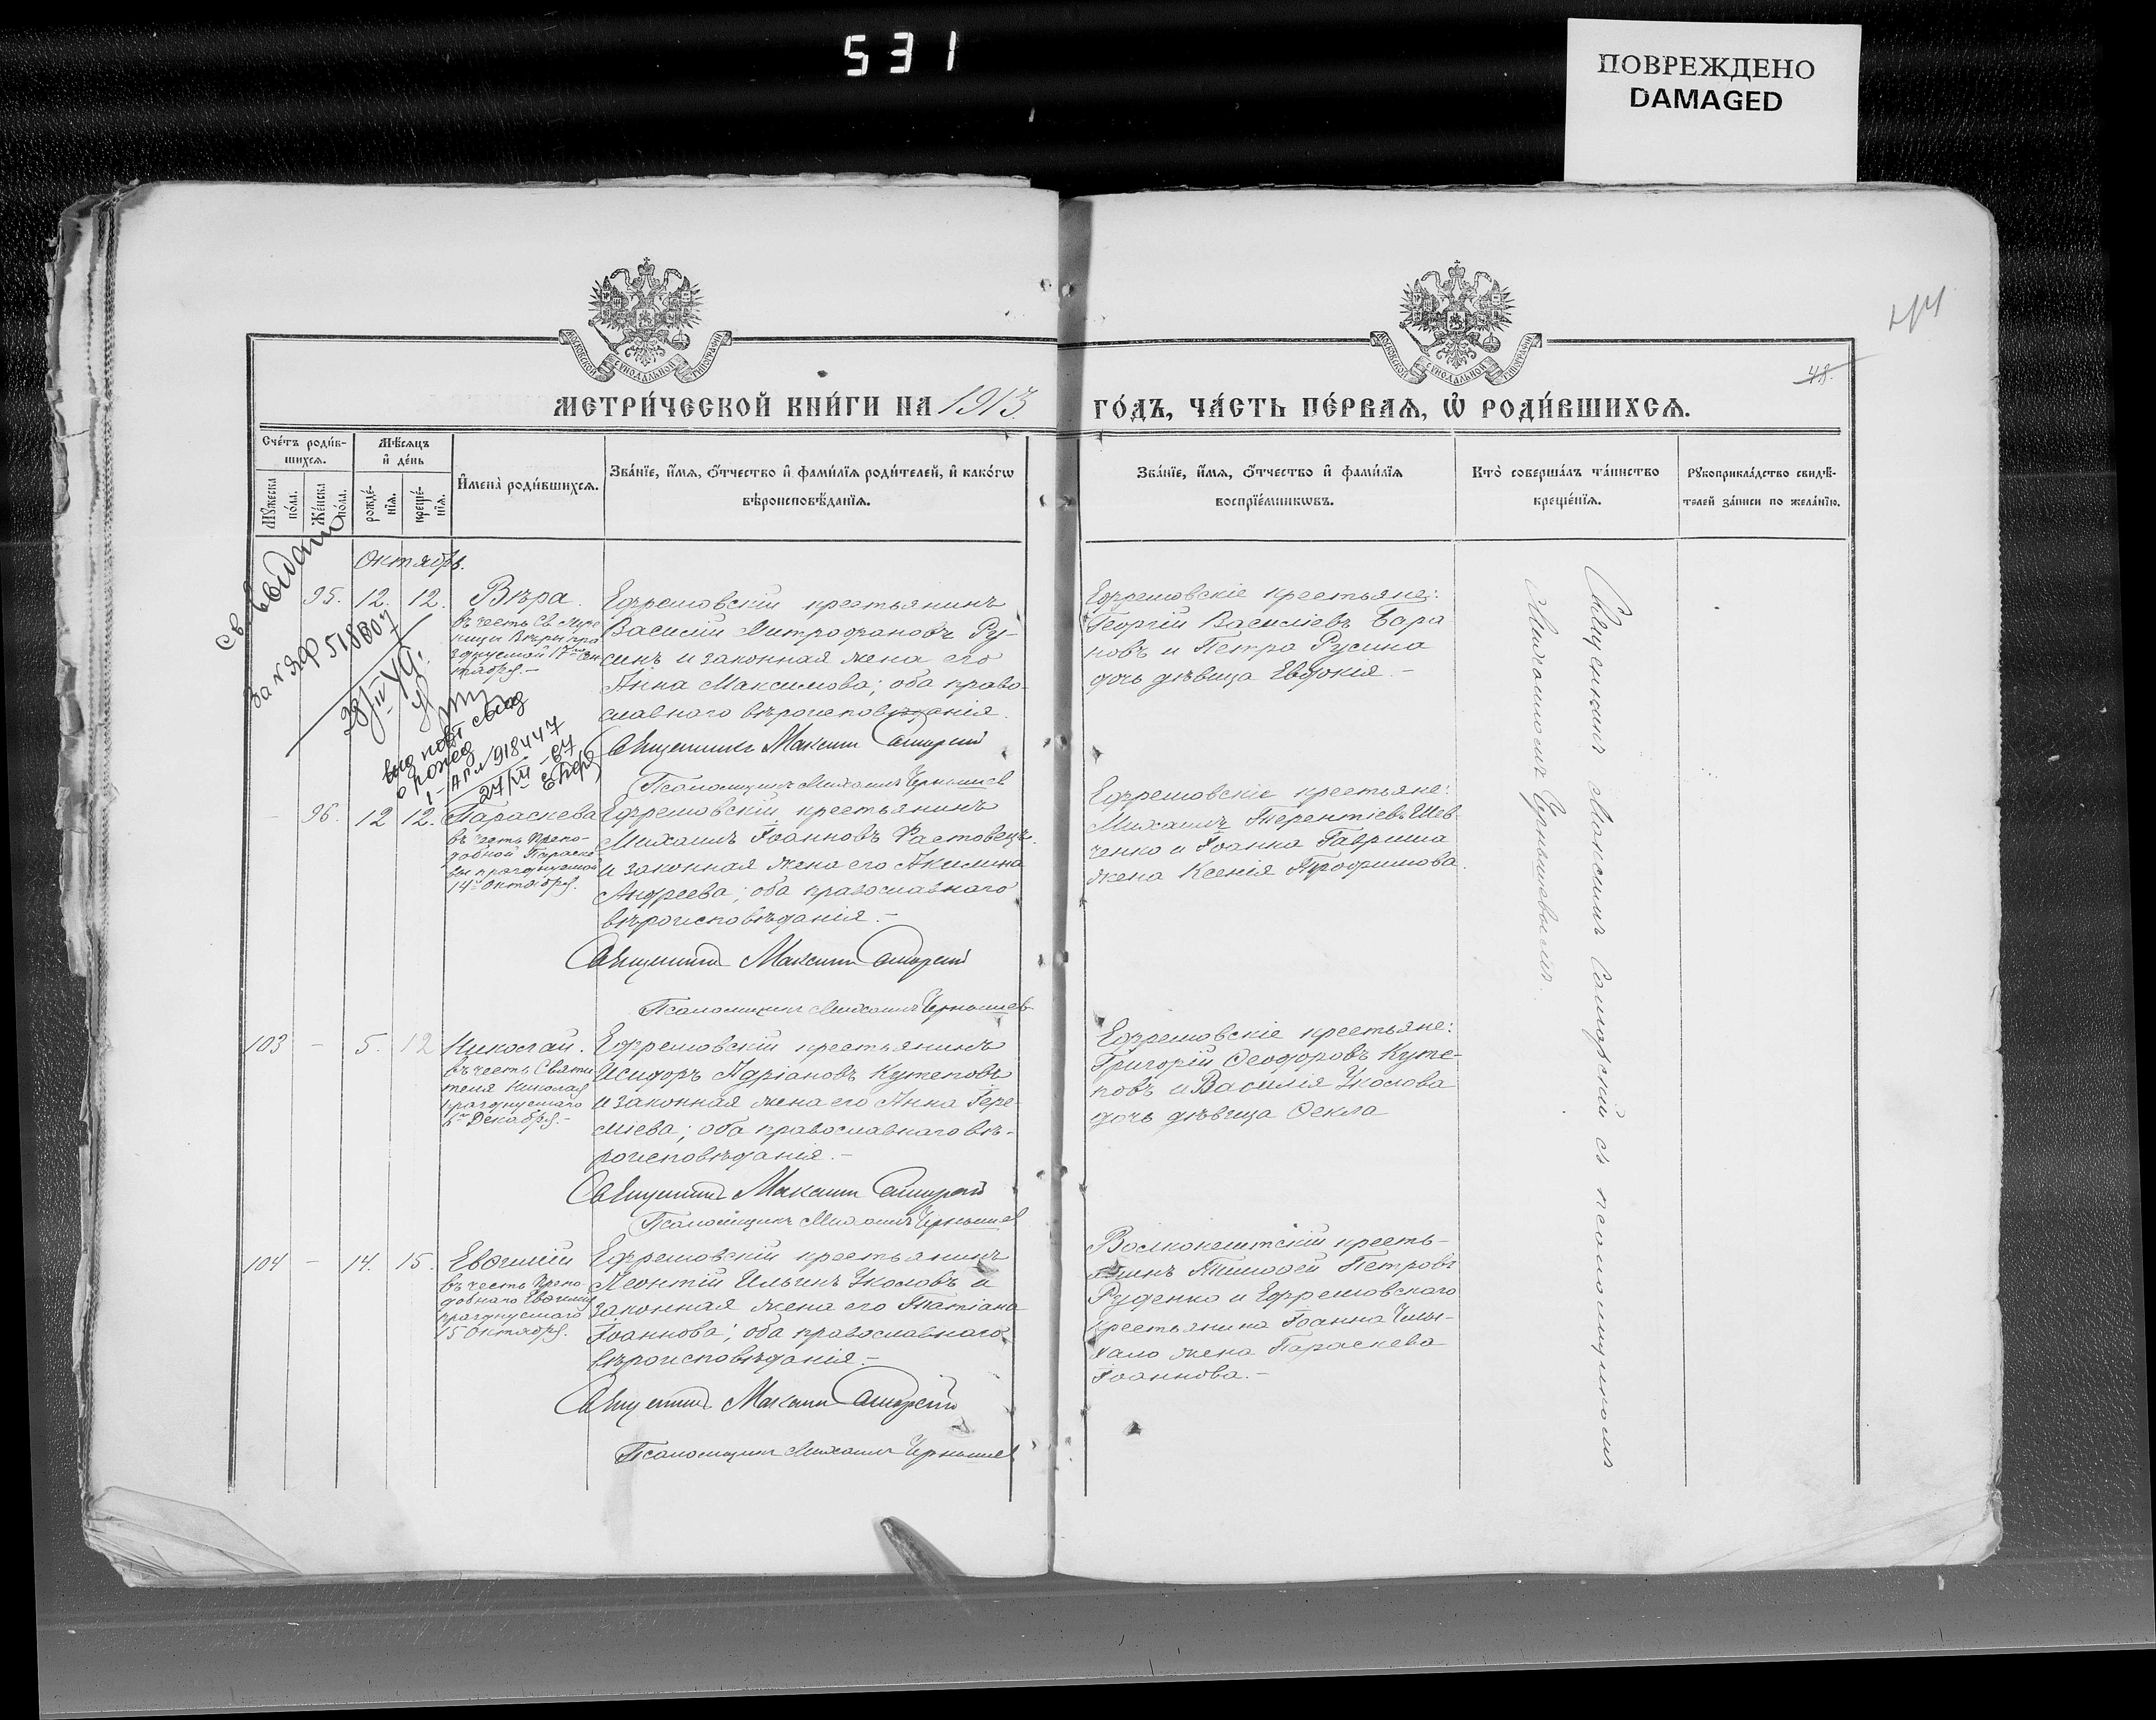 531
ПОВРЕЖДЕНО
DAMAGED
МОСКОВСКОЙ СѴНОДАЛЬНОЙ ТИПОГРАФІИ
МОСКОВСКОЙ СѴНОДАЛЬНОЙ ТИПОГРАФІИ
48.
МЕТРИ́ЧЕСКОЙ КНИ́ГИ НА 1913
ГО́ДЪ, ЧА́СТЬ ПЕ́РВАѦ, Ѡ РОДИ́ВШИХСѦ.
Сче́тъ роди́в-
шихсѧ.
Мꙋжеска по́ла.
Же́нска по́ла.
Мѣ́сѧцъ
и҆ де́нь
рожде́-
нїѧ.
креще́-
нїѧ.
И҆мена̀ роди́вшихсѧ.
Зва́нїе, и҆́мѧ, ѻ҆́тчество и҆ фами́лїѧ роди́телей, и҆ како́гѡ
вѣроисповѣ́данїѧ.
Зва́нїе, и҆́мѧ, ѻ҆́тчество и҆ фами́лїѧ
воспрїе́мникѡвъ.
Кто̀ соверша́лъ та́инство
креще́нїѧ.
Рꙋкоприкла́дство свидѣ́-
телей за́писи по жела́нїю.
Октябрь.
95. 12. 12. Вѣра.
въ честь Св. Муче
ницы Вѣры пра
зднуемой 17го Сен
тября.-
Ефремовскій крестьянинъ
Василій Митрофановъ Ру-
синъ и законная жена его
Анна Максимова; оба право-
славнаго вѣроисповѣданія.
Священникъ Максим Саморский
Псаломщикъ Михаилъ Чернышев
Ефремовскіе крестьяне:
Георгій Василіевъ Бара
новъ и Петра Русина
дочь дѣвица Евдокія.-
Св-во выдано
за № ЯФ 518807
повт свид
о рожд
918447
- 96. 12 12. Параскева
въ честь Препо-
добной Параске
вы празднуемой
14го Октября.
Ефремовскій крестьянинъ
Михаилъ Іоанновъ Растовецъ
и законная жена его Акилина
Андреева; оба православнаго
вѣроисповѣданія.-
Священникъ Максим Саморский
Псаломщикъ Михаилъ Чернышев
Ефремовскіе крестьяне:
Михаилъ Терентіевъ Шев-
ченко и Іоанна Гавриша
жена Ксенія Трофимова.
103 - 5. 12 Николай.
въ честь Святи
теля Николая
празднуемаго
6го Декабря.-
Ефремовскій крестьянинъ
Исидоръ Маріановъ Кутеповъ
и законная жена его Анна Іере-
міева; оба православнаго вѣ-
роисповѣданія.-
Священникъ Максим Саморский
Псаломщикъ Михаилъ Чернышев
Ефремовскіе крестьяне:
Григорій Ѳеодоровъ Куте-
повъ и Василія Уколова
дочь дѣвица Ѳекла
104 - 14. 15. Евѳимій
въ честь Препо-
добнаго Евѳимія
празднуемаго
15 Октября.
Ефремовскій крестьянинъ
Леонтій Ильинъ Уколовъ и
законная жена его Татіана
Іоаннова; оба православнаго
вѣроисповѣданія.-
Священникъ Максим Саморский
Псаломщикъ Михаилъ Чернышев
крестья-
нинъ Тимоѳей Петровъ
Руденко и Ефремовскаго
крестьянина Іоанна
жена Параскева
Іоаннова.-
Священникъ Максимъ Саморскій съ псаломщикомъ
Михаиломъ Чернышевымъ.